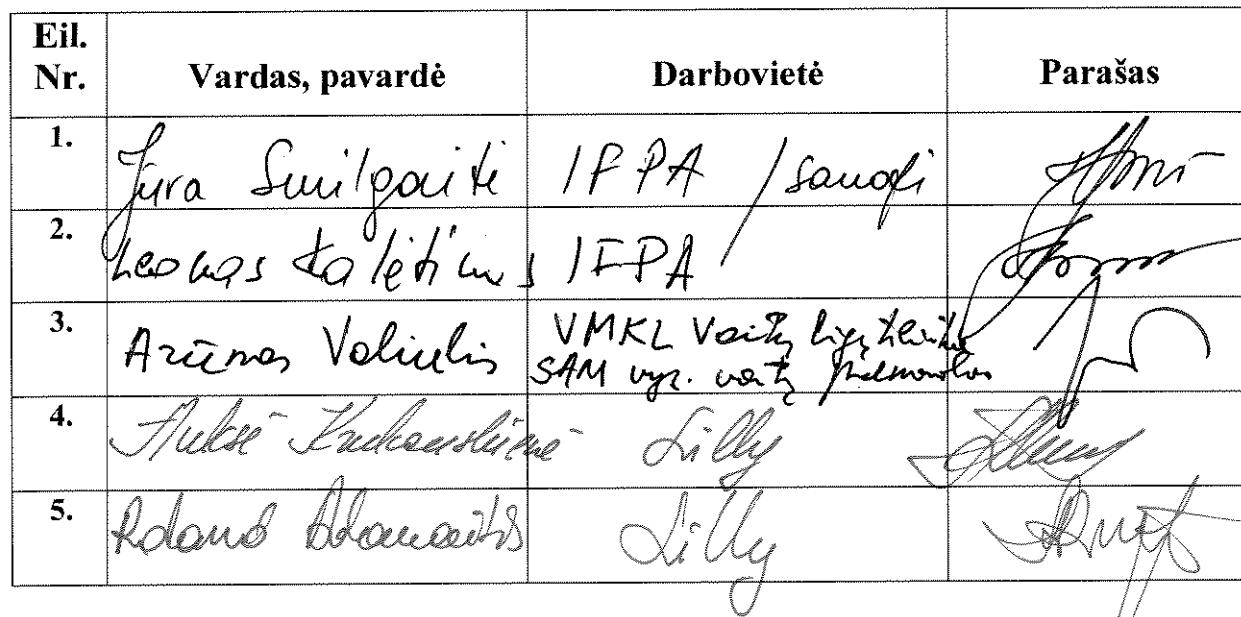 Eil. Nr. Vardas, pavardė Darbovietė Parašas
1. Jūra Smilgaitė IFPA / sanofi
2. Leonas Kalėtinas IFPA
3. Arūnas Valiulis VMKL Vaikų ligų klinika
SAM vyr. vaikų
4. Auksė Lilly
5. Roland Adamaitis Lilly